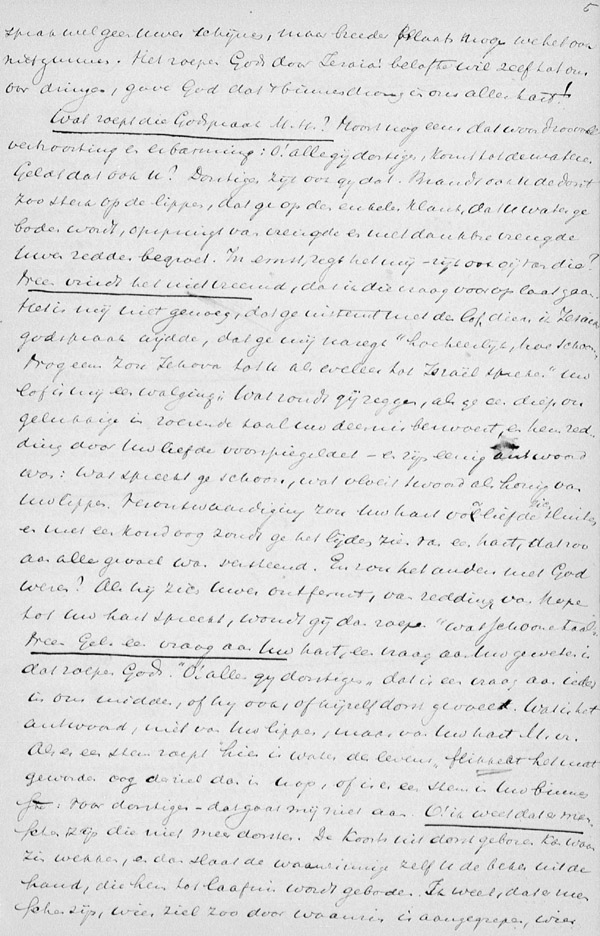 5
spraak wil geen uwer schijnen, maar breeder plaats moge we het ook
niet gunnen. Het roepen Gods door Jesaia's belofte wil zelf tot ons
oor dringen, gave God dat 't binnendrong in ons aller hart!
Wat roept die Godspraak M. H.? Hoort nog eens dat woord vol
vertroosting en erbarming: O! alle gij dorstigen, komt tot de wateren.
Geldt dat ook u? Dorstigen zijt ook gij dat. Brandt ook u de dorst
zoo sterk op de lippen, dat ge op den enkelen klank, dat u water ge
boden wordt, opspringt van vreugde en met dankbre vreugde
uwen redder begroet. In ernst, zegt het mij – zijt ook gij van die?
Neen vindt het niet vreemd, dat ik die vraag voorop laat gaan.
Het is mij niet genoeg, dat ge instemt met den lof, dien ik Jesaia's
godspraak wijdde, dat ge mij nazegt "hoe heerlijk, hoe schoon.
Mog eens zoo Jehova tot u als weleer tot Israël spreken" uw
lof is mij een walging; Wat zoudt gij zeggen, als ge een diep on
gelukkige in roerende taal uw deernis betoont, en hem red-
ding door uw liefde voorspiegeldet – en zijn eenig antwoord
was: Wat spreekt ge schoon, wat vloeit 't woord als honig van
uw lippen. Verontwaardiging zou uw hart vol liefde sluiten
en met een koud oog zoudt ge het lijden zien van een hart, dat zoo
aan alle gevoel was versteend. En zou het anders met God
wezen? Als hij zich uwer ontfermt, van redding van hope
tot uw hart spreekt, wondt gij dan roepen "wat schoone taal".
Neen Gels een vraag aan uw hart, een vraag aan uw geweten is
dat roepen Gods. "O! alle gij dorstigen" dat is een vraag aan ieder
in ons midden, of hij ook, of hijzelf dorst gevoelt. Wat is het
antwoord, niet van uw lippen, maar van uw hart M. Vr.
Als er een stem roept "hier is water des levens", flikkert het mat
geworden oog der ziel dan in hoop, of is er een stem in uw binnen
ste: voor dorstigen – dat gaat mij niet aan. O! ik weet dat er men
schen zijn die niet meer dorsten. De koorts uit dorst geboren kan waan
zin wekken, en dan slaat de waanzinnige zelf u den beker uit de
hand, die hem tot laafnis wordt geboden. Ik weet, dat er men
schen zijn, wier ziel zoo door waanzin is aangegrepen, wier